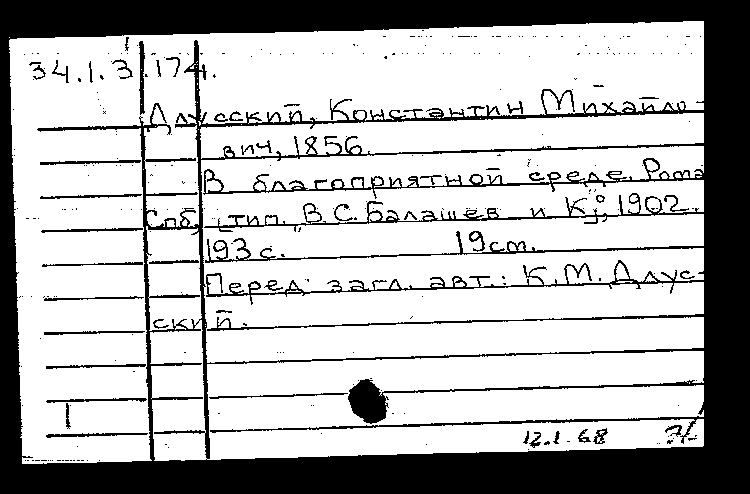 34.1.3.174.
Длусский, Константин Михайло-
вич, 1856.
В благоприятной среде. Рома
Спб, тип. В.С. Балашев и Кº, 1902.
193 с. 19 cm.
Перед загл. авт.: К.М. Длус-
ский.
12.1.68